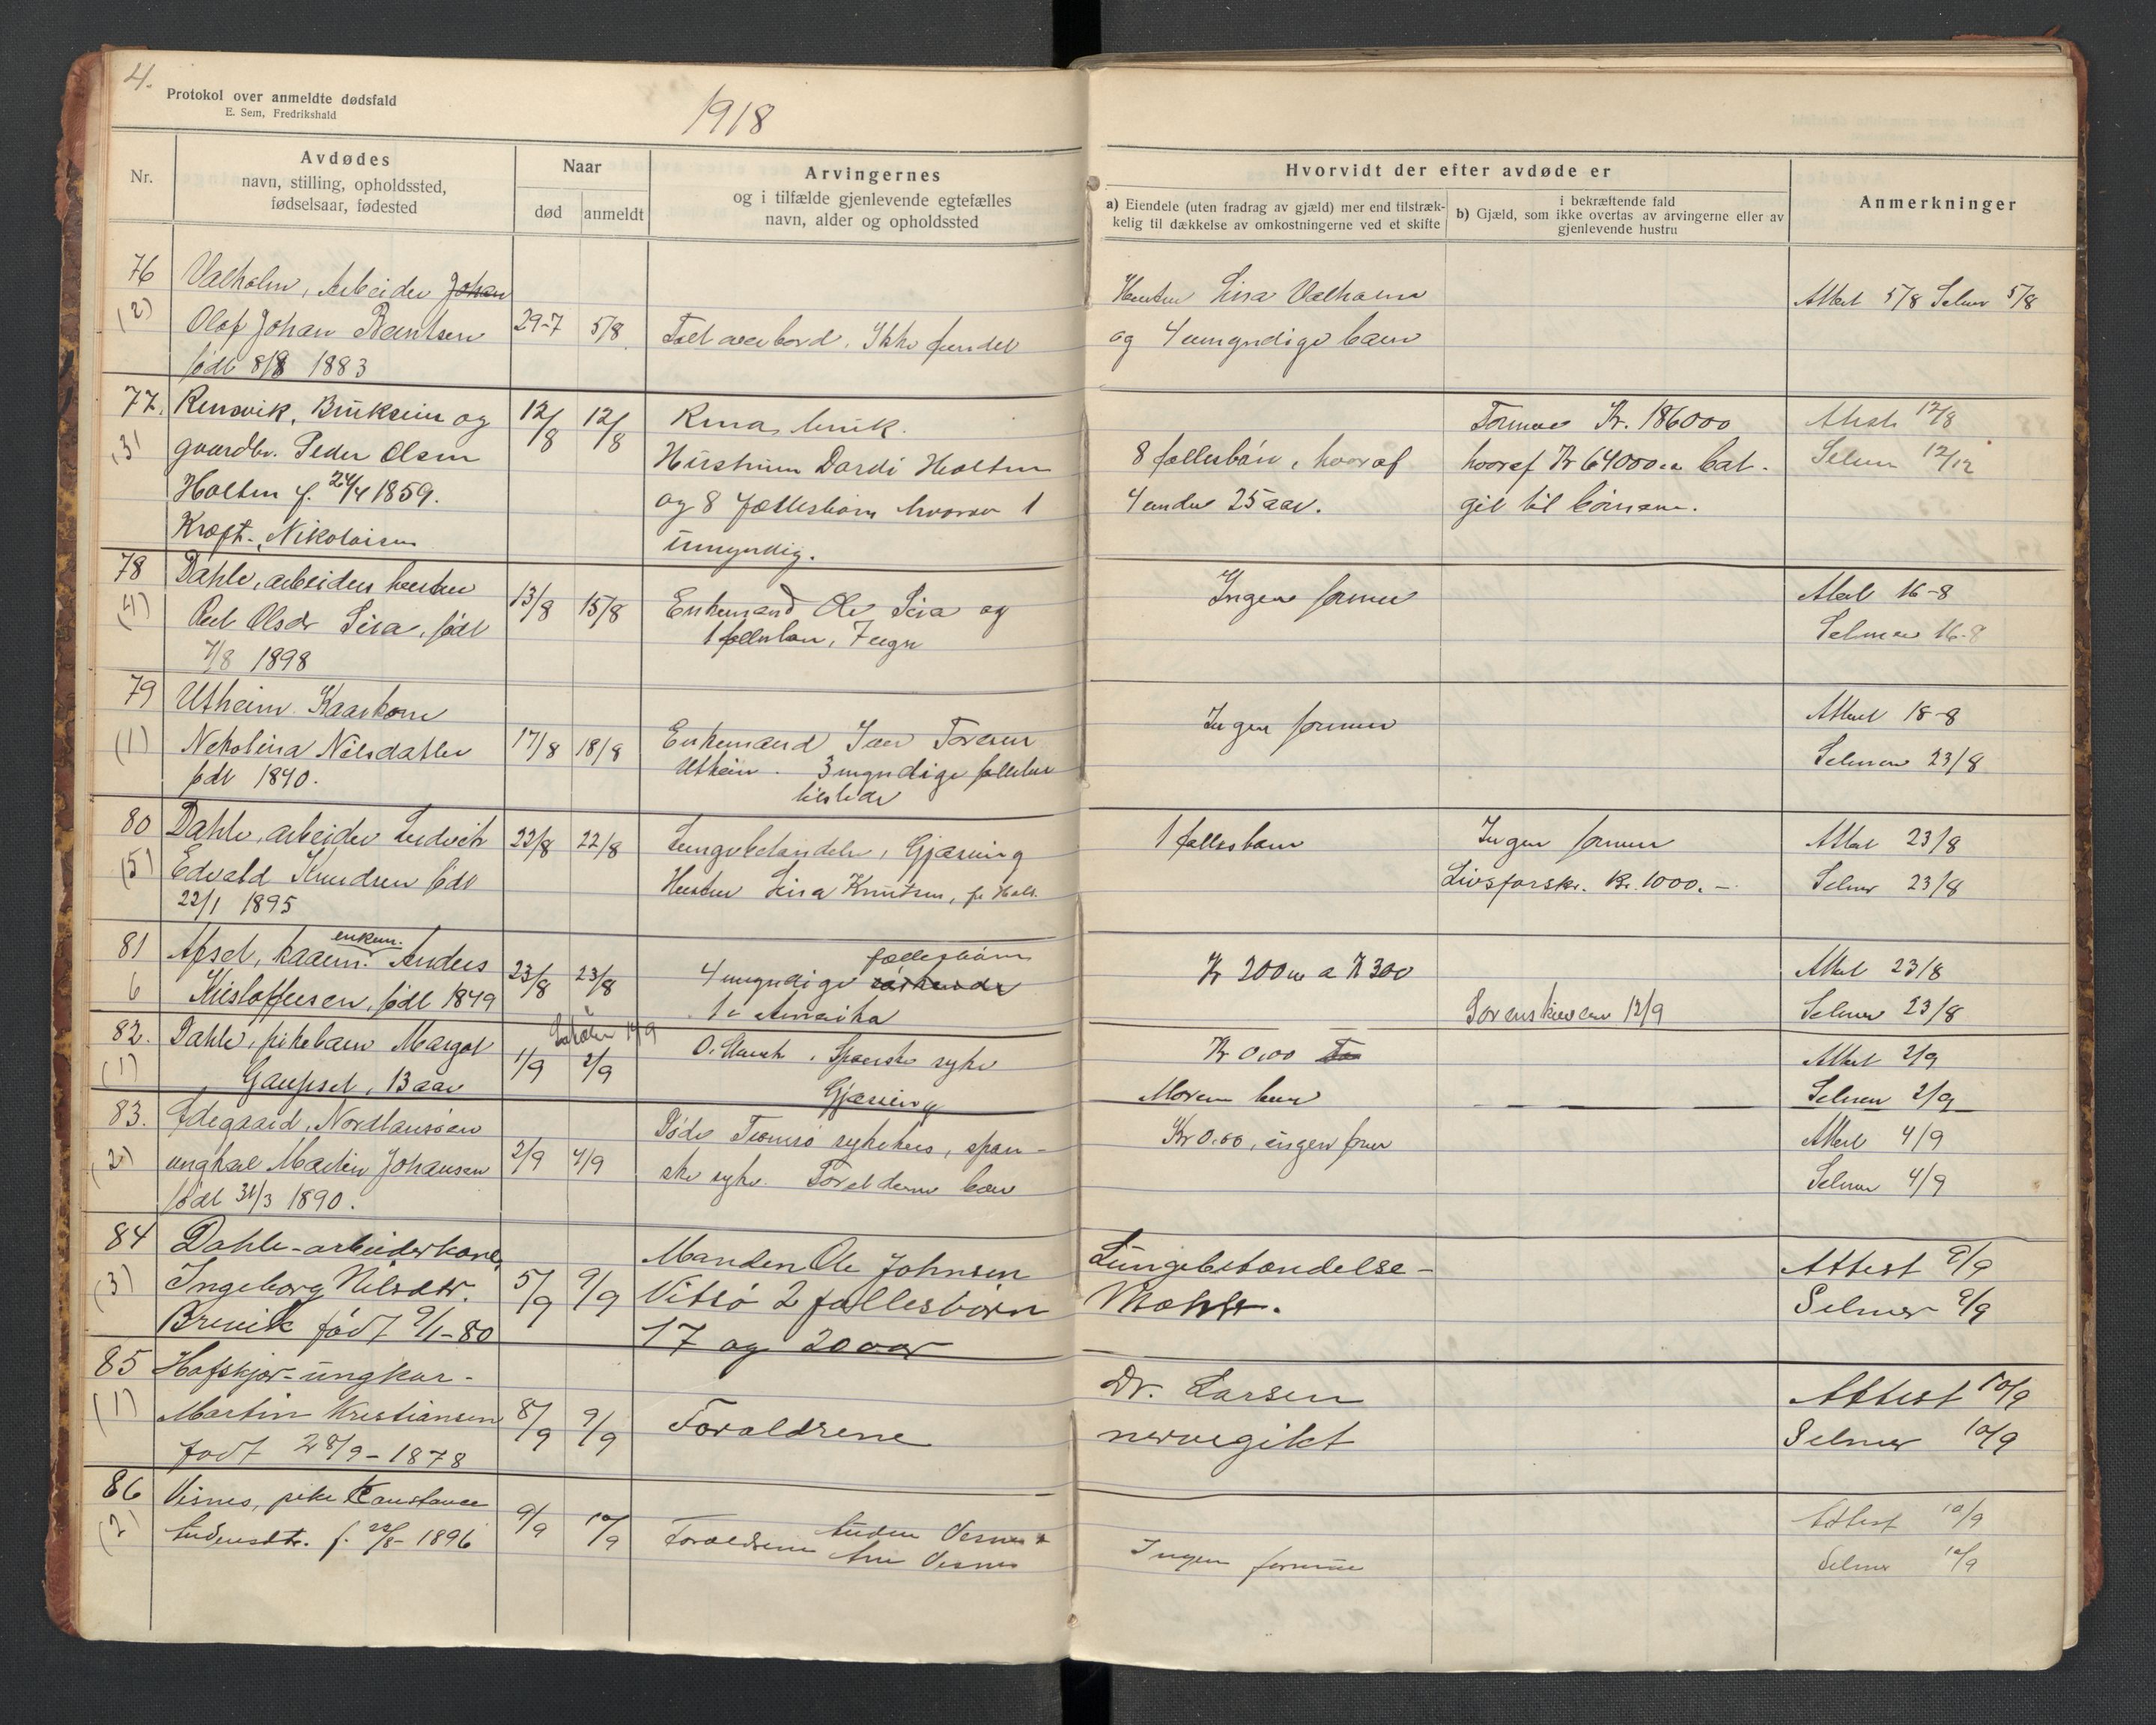 4.
Protokol over anmeldte dødsfald
E. Sem, Fredrikshald
1918
Nr.
Avdødes
navn, stilling, opholdssted,
fødselsaar, fødested
Naar
død
anmeldt
Arvingernes
og i tilfælde gjenlevende egtefælles
navn, alder og opholdssted
Hvorvidt der efter avdøde er
a) Eiendele (uten fradrag av gjæld) mer end tilstræk-
kelig til dækkelse av omkostningerne ved et skifte
i bekræftende fald
b) Gjæld, som ikke overtas av arvingerne eller av
gjenlevende hustru
Anmerkninger
76
(2)
Valholm, Arbeider Johan
Olaf Johan Berntsen
født 8/8 1883
29-7
5/8
Falt overbord. Ikke fundet
Hustru Lisa Valholm
og 4 umyndige barn
Attest 5/8 Selmer 5/8
77.
(3)
Rensvik, Brukseier og
gaardbr. Peder Olsen
Holten f. 24/4 1859.
Kræft. Nikolaisen
12/8
12/8
Rensvik.
Hustruen Dardi Holten
og 8 fællesbørn hvorav 1
umyndig.
8 fællesbørn, hvoraf
4 under 25 aar.
Formue Kr. 186000
hvoraf Kr 64000
git til børnene.
Attest 12/8
Selmer 12/12
78
(4)
Dahle, arbeiders hustru
Olsdr Lisa, født
7/8 1898
13/8
15/8
Enkemand Ole Lisa og
1 fællesbarn,
Ingen formue
Attest 16-8
Selmer 16-8
79
(1)
Utheim Kaarkone
Nekolina Nilsdatter
født 1840.
17/8
18/8
Enkemand Iver Toresen
Utheim. 3 myndige fællesbørn
tilstede
Ingen formue
Attest 18-8
Selmer 23/8
80
(5)
Dahle, arbeider Ludvik
Edvald Knudsen født
22/1 1895
22/8
22/8
Lungebetændelse, Gjæsing
Hustru Lisa Knutsen, f.
1 fællesbarn
Ingen formue
Livsforskr. Kr. 1000.-
Attest 23/8
Selmer 23/8
81
6
enkem.
Apsel, kaarm. Anders
Kristoffersen, født 1849
23/8
23/8
fællesbørn
4 myndige
1 i Amerika
Kr 200 a Kr 300
Sorenskriveren 12/9
Attest 23/8
Selmer 23/8
82.
(1)
Dahle, pikebarn Margot
Gaupset, 13 aar
14/9
1/9
2/9
Spanske syke
Gjæsing
Kr 0.00
Moren
Attest 2/9
Selmer 2/9
83.
(2)
Ødegaard, Nordlandsøen
ungkar Martin Johansen
født 31/3 1890.
2/9
4/9
Døde Tromsø sykehus, span-
ske syke Forældrene
Kr 0.00, ingen form
Attest 4/9
Selmer 4/9
84
(3)
Dahle-arbeiderkone,
Ingeborg Nilsdtr.
Brevik født 9/1-80
5/9
9/9
Manden Ole Johnsen
Vitsø 2 fællesbørn
17 og 20 aar
Lungebetændelse-
Attest 9/9
Selmer 9/9
85
(1)
Hafskjær-ungkar-
Martin Kristiansen
født 28/9-1878
8/9
9/9
Forældrene
Dr. Larsen
nervegikt
Attest 10/9
Selmer 10/9
86
(2)
Visnes, pike Constance
f. 22/8-1896
9/9
10/9
Forældrene
Visnes
Ane Visnes
Ingen formue
Attest 10/9
Selmer 10/9